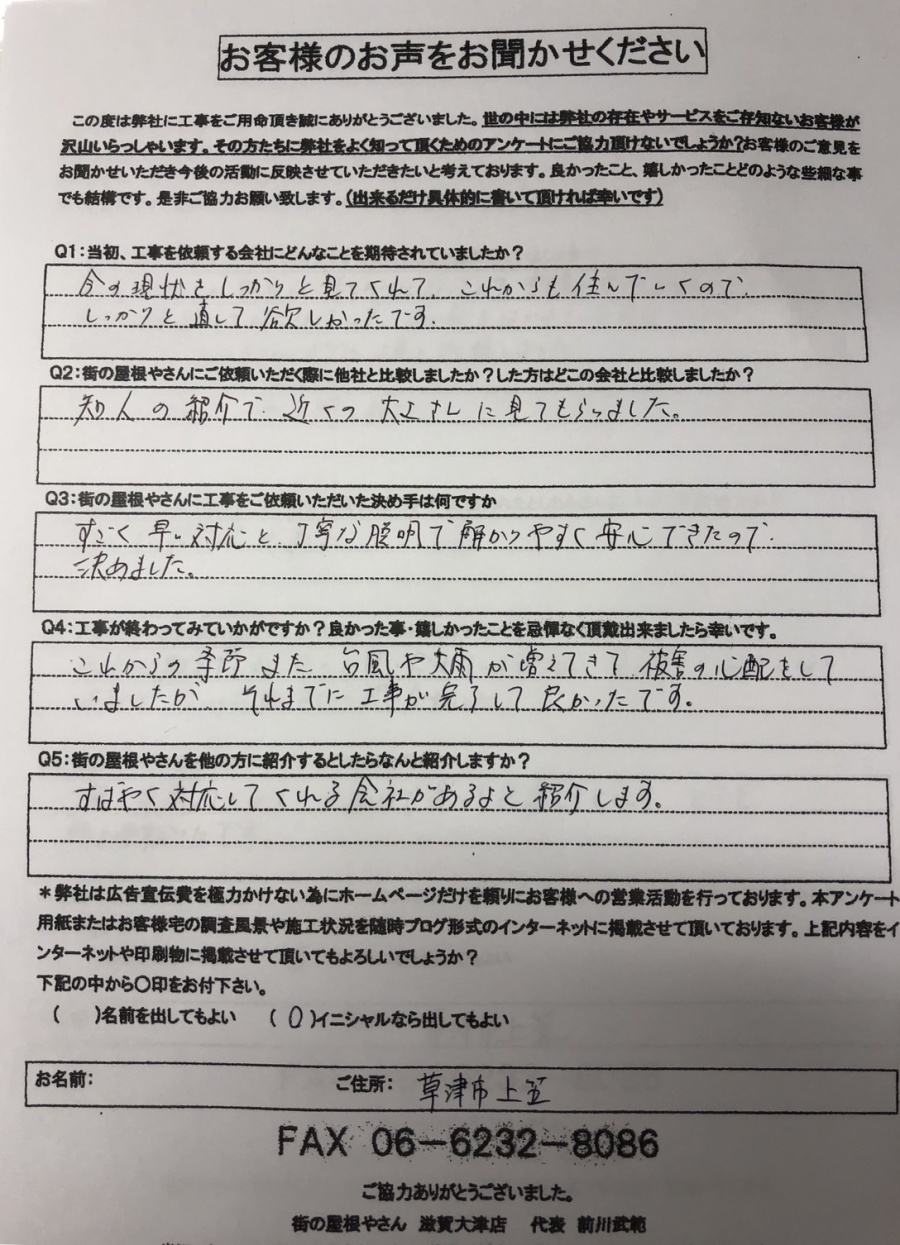 お客様のお声をお聞かせください
この度は弊社に工事をご用命頂き誠にありがとうございました。世の中には弊社の存在やサービスをご存知ないお客様が
沢山いらっしゃいます。その方たちに弊社をよく知って頂くためのアンケートにご協力頂けないでしょうか?お客様のご意見を
お聞かせいただき今後の活動に反映させていただきたいと考えております。良かったこと、嬉しかったことどのような些細な事
でも結構です。是非ご協力お願い致します。(出来るだけ具体的に書いて頂ければ幸いです)
Q1:当初、工事を依頼する会社にどんなことを期待されていましたか?
今の現状をしっかりと見てくれて、これからも住んでいくので、
しっかりと直して欲しかったです。
Q2:街の屋根やさんにご依頼いただく際に他社と比較しましたか?した方はどこの会社と比較しましたか?
知人の紹介で、近くの大工さんに見てもらいました。
Q3:街の屋根やさんに工事をご依頼いただいた決め手は何ですか
すごく早い対応と、丁寧な説明で解かりやすく安心できたので、
決めました。
Q4:工事が終わってみていかがですか?良かった事・嬉しかったことを忌憚なく頂戴出来ましたら幸いです。
これからの季節また台風や大雨が増えてきて被害の心配をして
いましたが、それまでに工事が完了して良かったです。
Q5:街の屋根やさんを他の方に紹介するとしたらなんと紹介しますか?
すばやく対応してくれる会社があるよと紹介します。
*弊社は広告宣伝費を極力かけない為にホームページだけを頼りにお客様への営業活動を行っております。本アンケート
用紙またはお客様宅の調査風景や施工状況を随時ブログ形式のインターネットに掲載させて頂いております。上記内容をイ
ンターネットや印刷物に掲載させて頂いてもよろしいでしょうか?
下記の中から〇印をお付下さい。
( )名前を出してもよい (〇)イニシャルなら出してもよい
お名前: ご住所: 草津市上笠
FAX 06-6232-8086
ご協力ありがとうございました。
街の屋根やさん 滋賀大津店 代表 前川武範